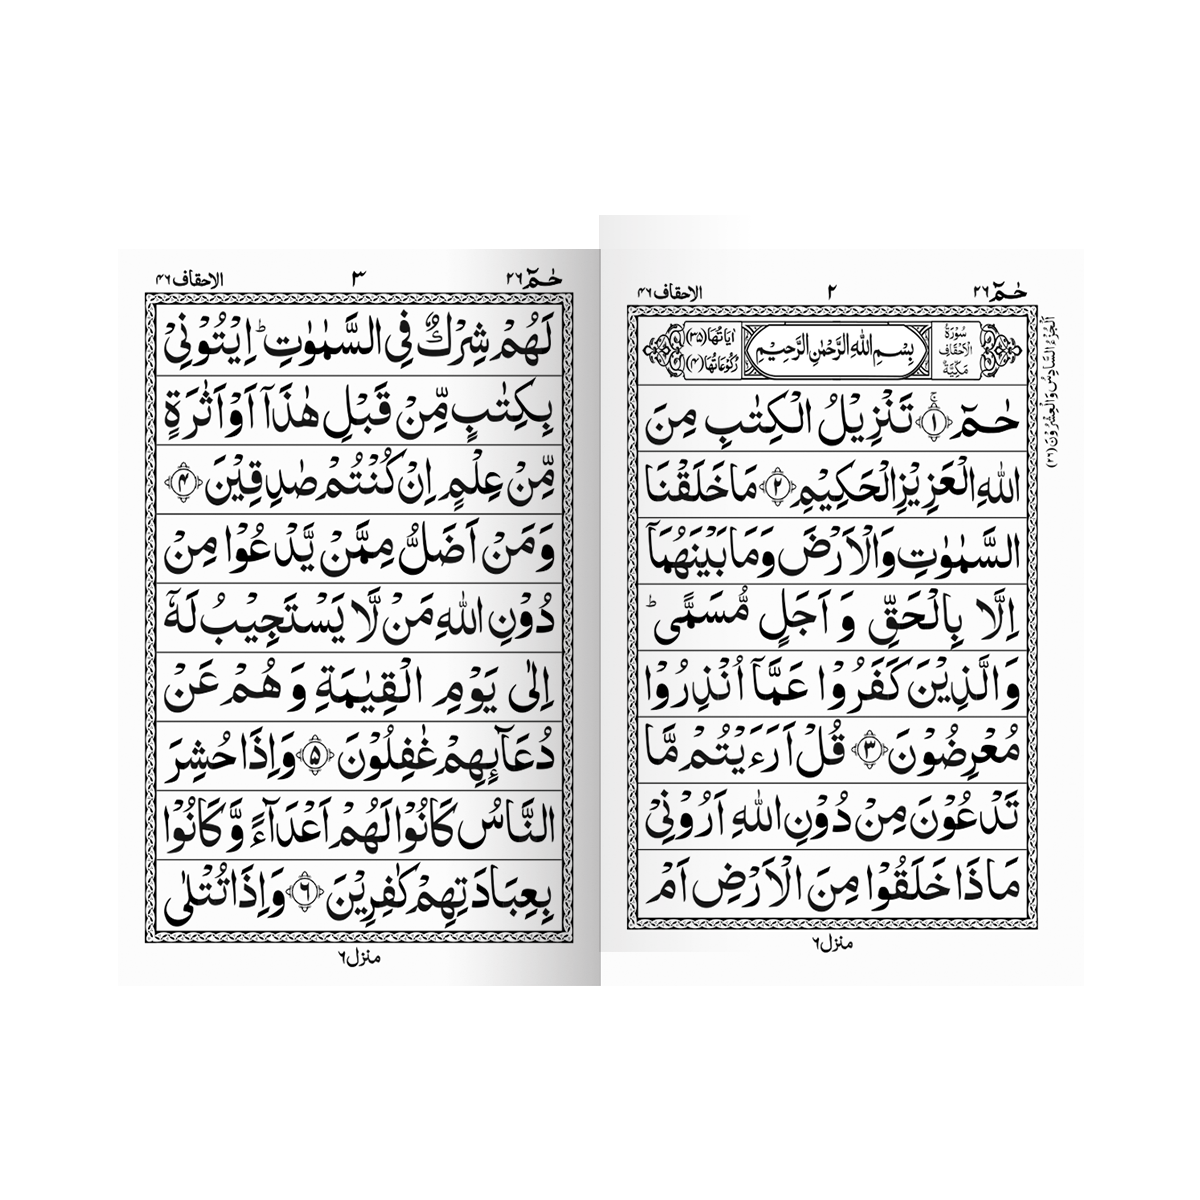 حٰمٓ ٢٦
٢
الاحقاف ٤٦
سُوْرَةُ الْاَحْقَافِ مَكِّيَّةٌ
بِسْمِ اللهِ الرَّحْمٰنِ الرَّحِيْمِ
اٰيَاتُهَا (٣٥)
رُكُوْعَاتُهَا (٤)
اَلْجُزْءُ السَّادِسُ وَالْعِشْرُوْنَ (٢٦)
حٰمٓ ۚ ١ تَنْزِيْلُ الْكِتٰبِ مِنَ
اللهِ الْعَزِيْزِ الْحَكِيْمِ ٢ مَا خَلَقْنَا
السَّمٰوٰتِ وَالْاَرْضَ وَمَا بَيْنَهُمَاۤ
اِلَّا بِالْحَقِّ وَ اَجَلٍ مُّسَمًّى ؕ
وَالَّذِيْنَ كَفَرُوْا عَمَّاۤ اُنْذِرُوْا
مُعْرِضُوْنَ ٣ قُلْ اَرَءَيْتُمْ مَّا
تَدْعُوْنَ مِنْ دُوْنِ اللهِ اَرُوْنِيْ
مَاذَا خَلَقُوْا مِنَ الْاَرْضِ اَمْ
منزل ٦
حٰمٓ ٢٦
٣
الاحقاف ٤٦
لَهُمْ شِرْكٌ فِي السَّمٰوٰتِ ؕ اِيْتُوْنِيْ
بِكِتٰبٍ مِّنْ قَبْلِ هٰذَاۤ اَوْ اَثٰرَةٍ
مِّنْ عِلْمٍ اِنْ كُنْتُمْ صٰدِقِيْنَ ٤
وَمَنْ اَضَلُّ مِمَّنْ يَّدْعُوْا مِنْ
دُوْنِ اللهِ مَنْ لَّا يَسْتَجِيْبُ لَهٗۤ
اِلٰى يَوْمِ الْقِيٰمَةِ وَهُمْ عَنْ
دُعَآئِهِمْ غٰفِلُوْنَ ٥ وَاِذَا حُشِرَ
النَّاسُ كَانُوْا لَهُمْ اَعْدَآءً وَّكَانُوْا
بِعِبَادَتِهِمْ كٰفِرِيْنَ ٦ وَاِذَا تُتْلٰى
منزل ٦